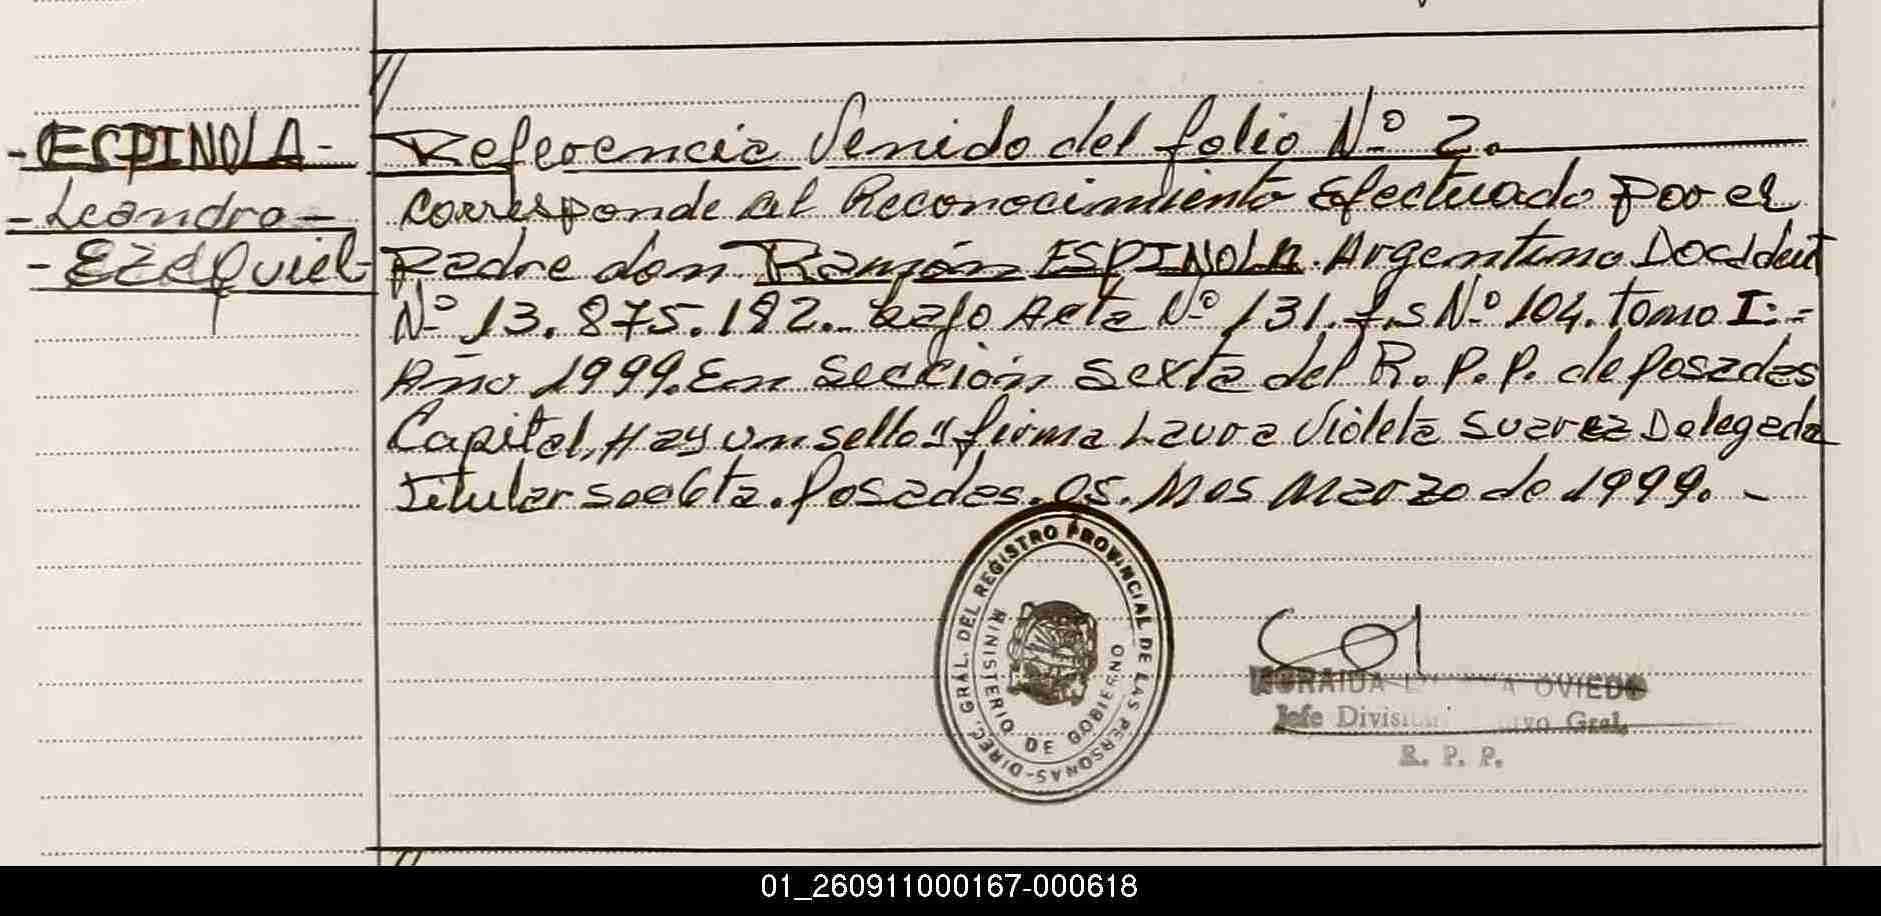 -ESPINOLA-
-Leandro-
-Ezequiel-
Referencia Venido del folio Nº 2.
Corresponde al Reconocimiento Efectuado por el
Padre don Ramón ESPINOLA. Argentino Doc Ident
Nº 13.875.182.- bajo Acta Nº 131. fs Nº 104. Tomo I:-
Año 1999. En Sección Sexta del R. P. P. de posadas
Capital, Hay un sello y firma Laura Violeta Suarez Delegada
Titular Sec 6ta. Posadas. 05. Mes Marzo de 1999. -
DIREC. GRAL. DEL REGISTRO PROVINCIAL DE LAS PERSONAS-
MINISTERIO DE GOBIERNO
OVIEDO
Jefe División Gral.
R. P. P.
01_260911000167-000618